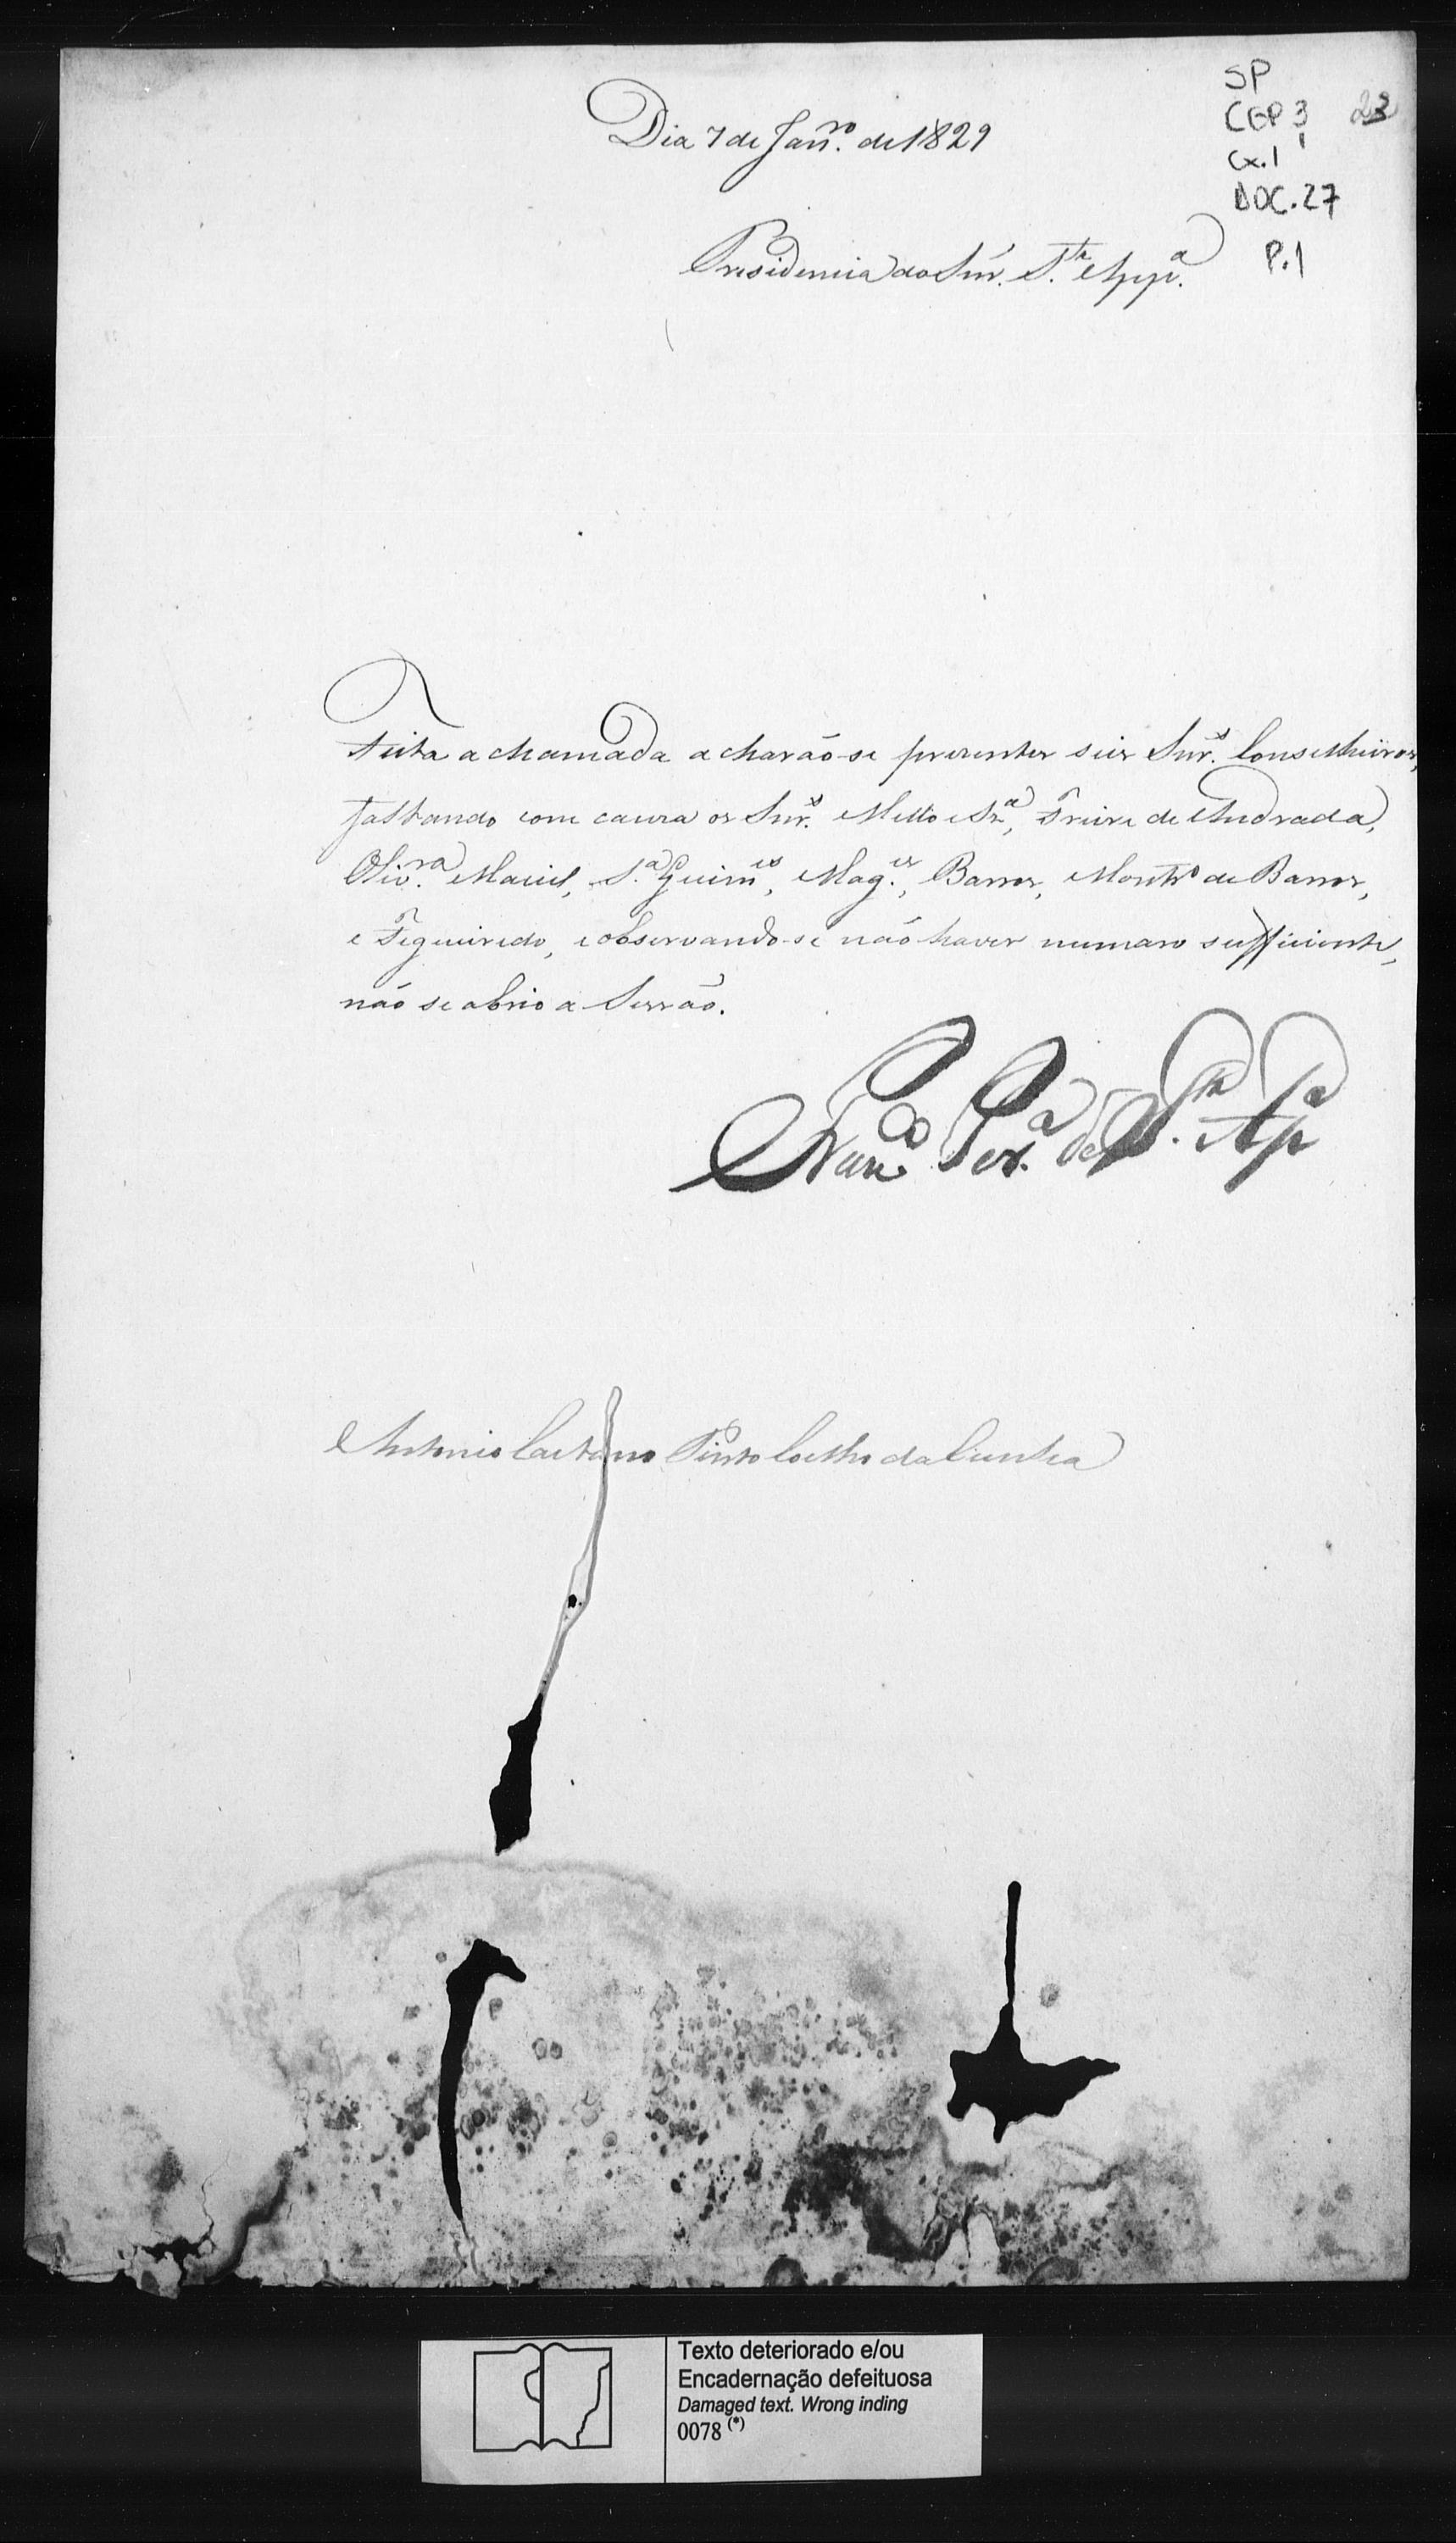 SP
CGP 3 23
Cx.1
DOC.27
P.1
Dia 7 de Jan.ro de 1829
Presidencia do Snr. S.ta App.a
Feita a chamada acharão-se prezentes seis Snr.s Conselheiros,
faltando com cauza os Snr.s Mello e Sz.a, Freire de Andrada,
Oliv.ra Maciel, S.a Guim.es, Mag.es, Barros, Montr.o de Barros,
e Figueiredo, e observando-se não haver numaro sufficiente,
não se abrio a Sessão.
Fran.co Per.a de S.ta Ap.a
Antonio Caetano Pinto Coelho da Cunha
Texto deteriorado e/ou
Encadernação defeituosa
Damaged text. Wrong inding
0078 (*)